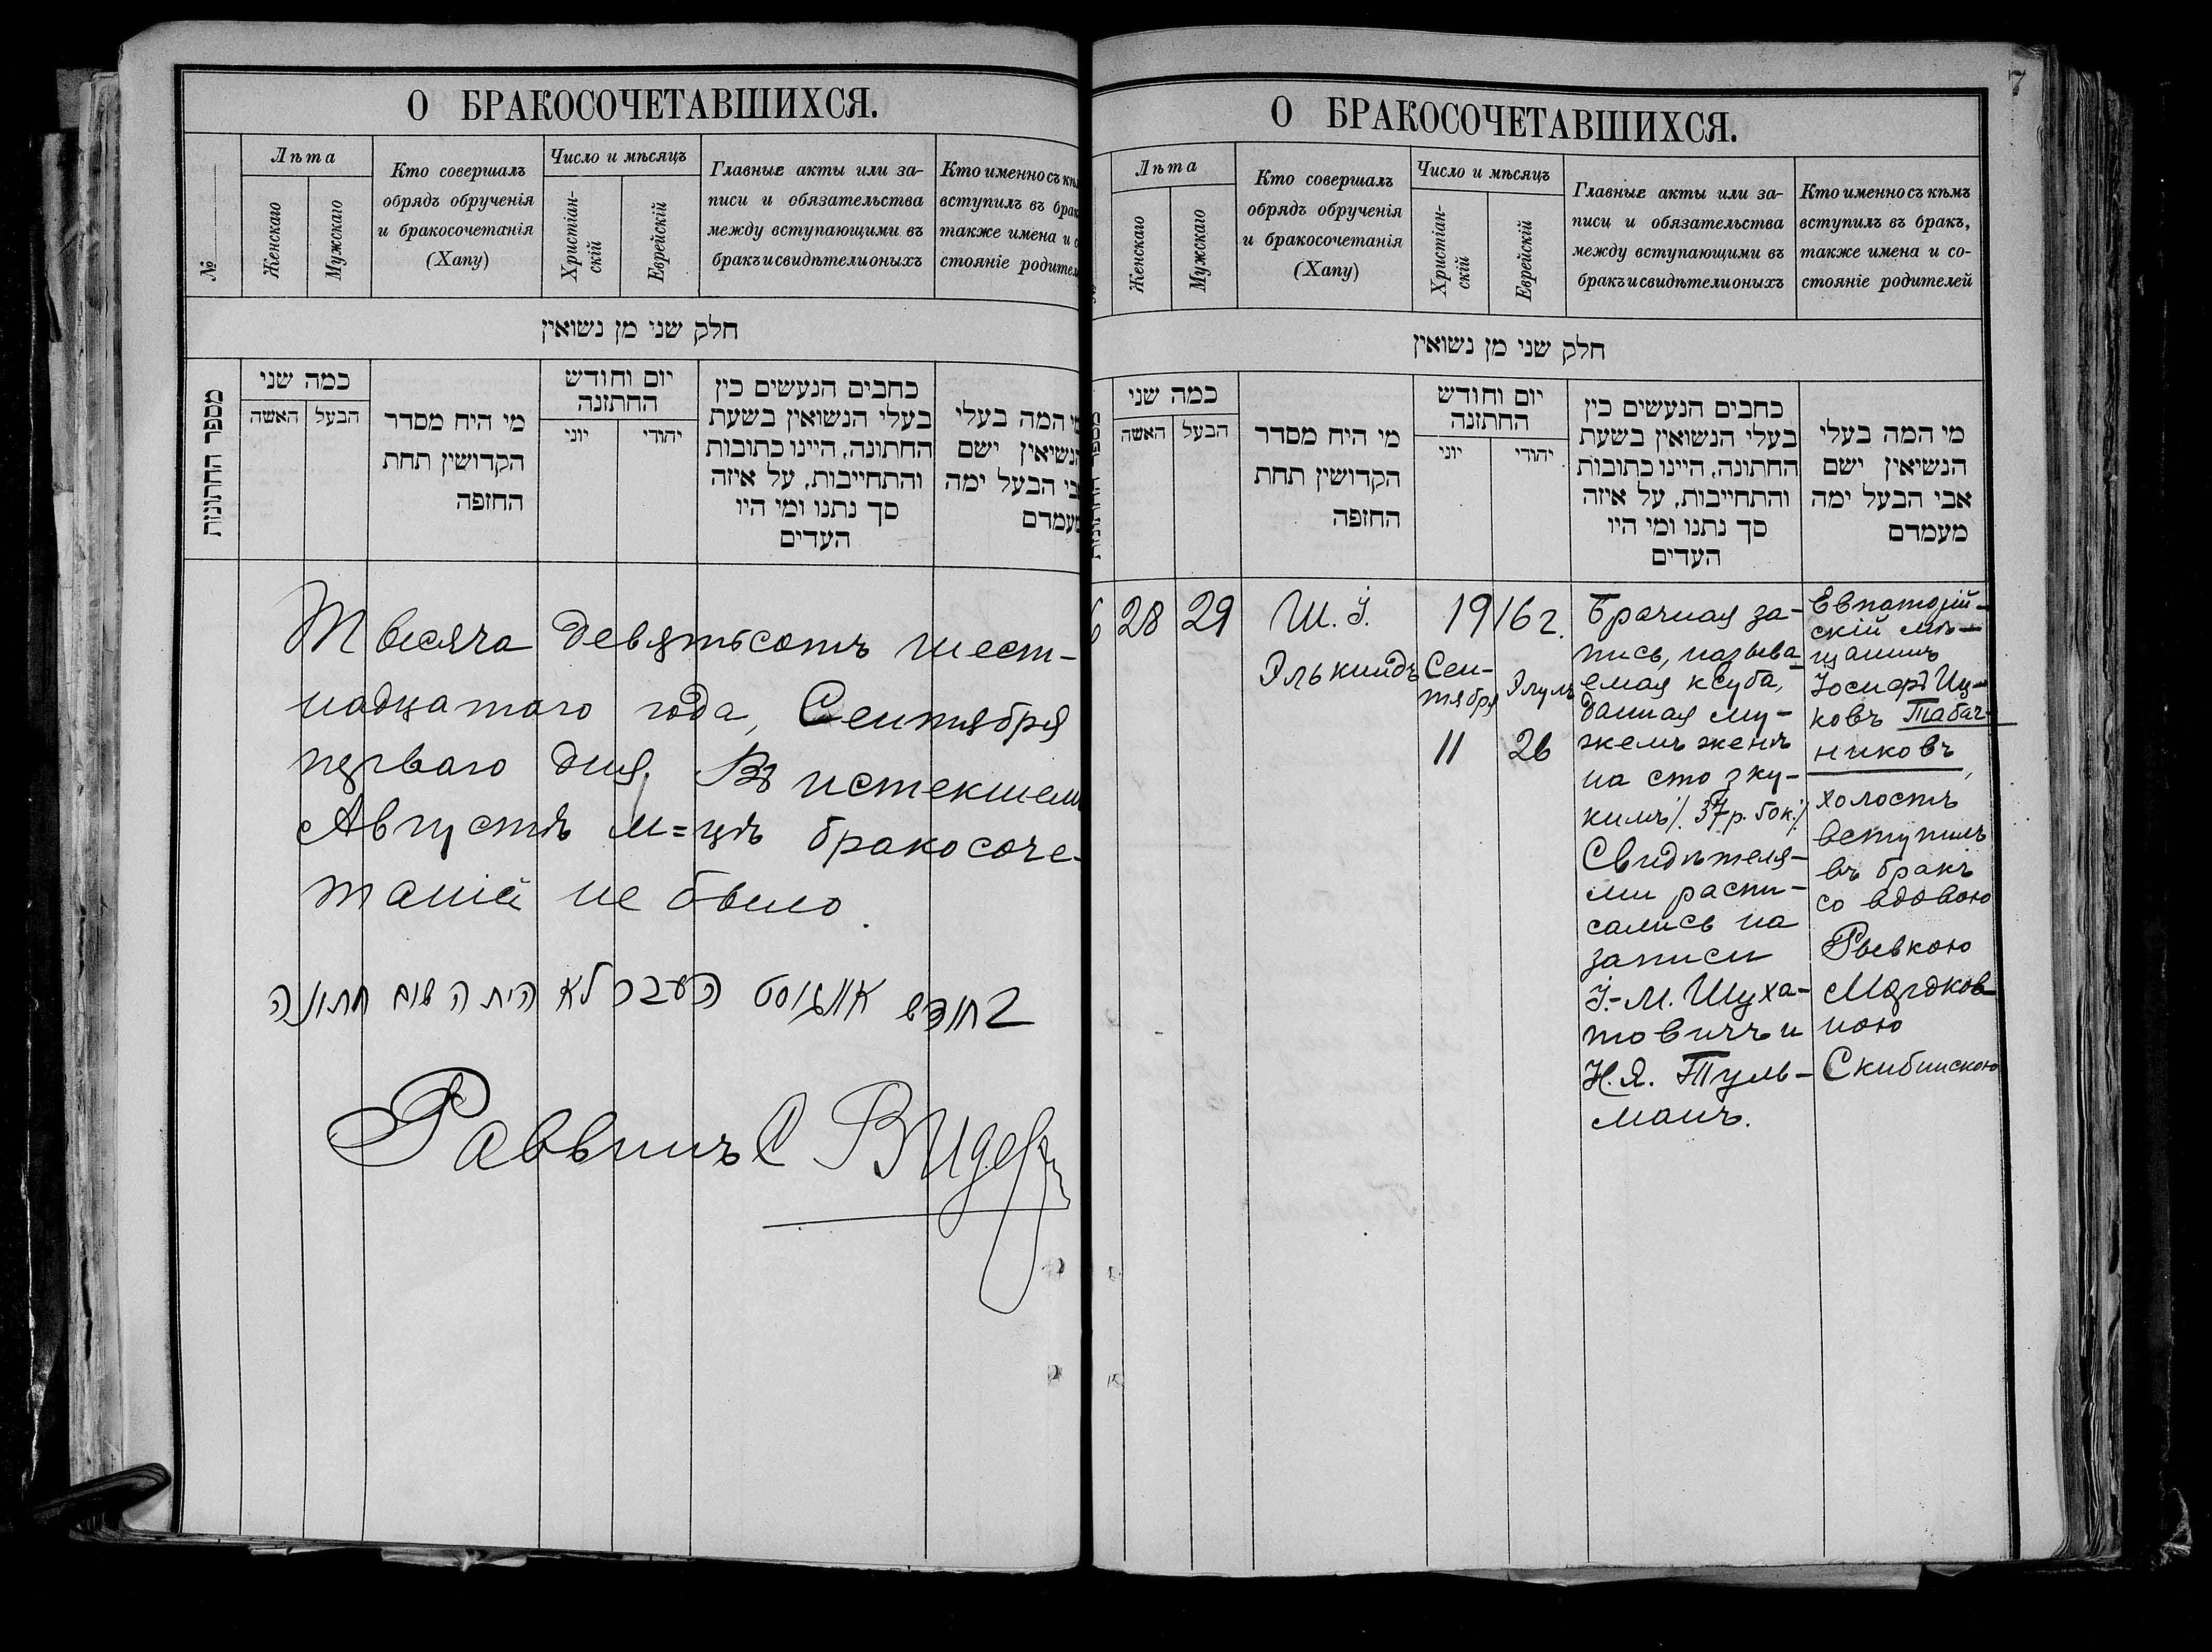 О БРАКОСОЧЕТАВШИХСЯ.
№
Лѣта
Женскаго
Мужскаго
Кто совершалъ
обрядъ обрученія
и бракосочетанія
(Хапу)
Число и мѣсяцъ
Христіан-
скій
Еврейскій
Главные акты или за-
писи и обязательства
между вступающими въ
бракъ и свидѣтели оныхъ
Кто именно съ кѣм
вступилъ въ брак
также имена и с
стояніе родител
חלק שני מן נשואין
מספר החתונות
כמה שני
האשה
הבעל
מי היח מסדר
הקדושין תחת
החופה
יום וחודש
החתונה
יוני
יהודי
כחבים הנעשים כין
בעלי הנשואין בשעת
החתונה, היינו כתובות
והתחייבות, על איזה
סך נתנו ומי היו
העדים
מי המה בעלי
הנשיאין ישם
אבי הבעל ימה
מעמדם
Тысяча девятьсотъ шест-
надцатаго года, Сентября
перваго дня. Въ истекшем
Августѣ м=цѣ бракосоче-
таній не было.
בחודש אויגוסט העבר לא היתה שום חתונה
Раввинъ С Видер
7
О БРАКОСОЧЕТАВШИХСЯ.
Лѣта
Женскаго
Мужскаго
Кто совершалъ
обрядъ обрученія
и бракосочетанія
(Хапу)
Число и мѣсяцъ
Христіан-
скій
Еврейскій
Главные акты или за-
писи и обязательства
между вступающими въ
бракъ и свидѣтели оныхъ
Кто именно съ кѣмъ
вступилъ въ бракъ,
также имена и со-
стояніе родителей
חלק שני מן נשואין
כמה שני
האשה
הבעל
מי היח מסדר
הקדושין תחת
החופה
יום וחודש
החתונה
יוני
יהודי
כחבים הנעשים כין
בעלי הנשואין בשעת
החתונה, היינו כתובות
והתחייבות, על איזה
סך נתנו ומי היו
העדים
מי המה בעלי
הנשיאין ישם
אבי הבעל ימה
מעמדם
6
28
29
Ш. І.
Элькиндъ
1916 г.
Сен-
тября
11
Элулъ
26
Брачная за-
пись, называ-
емая ксуба,
данная му-
жемъ женѣ
на сто зку-
кимъ /. 37 р. 50 к. /.
Свидѣтеля-
ми распи-
сались на
записи
І.-М. Шуха-
товичъ и
Н. Я. Туль-
манъ.
Евпаторій-
скій мѣ-
щанинъ
Іосифъ Иц-
ковъ Табач-
никовъ,
холостъ
вступилъ
въ бракъ
со вдовою
Рывкою
Мордков
ною
Скибинскою